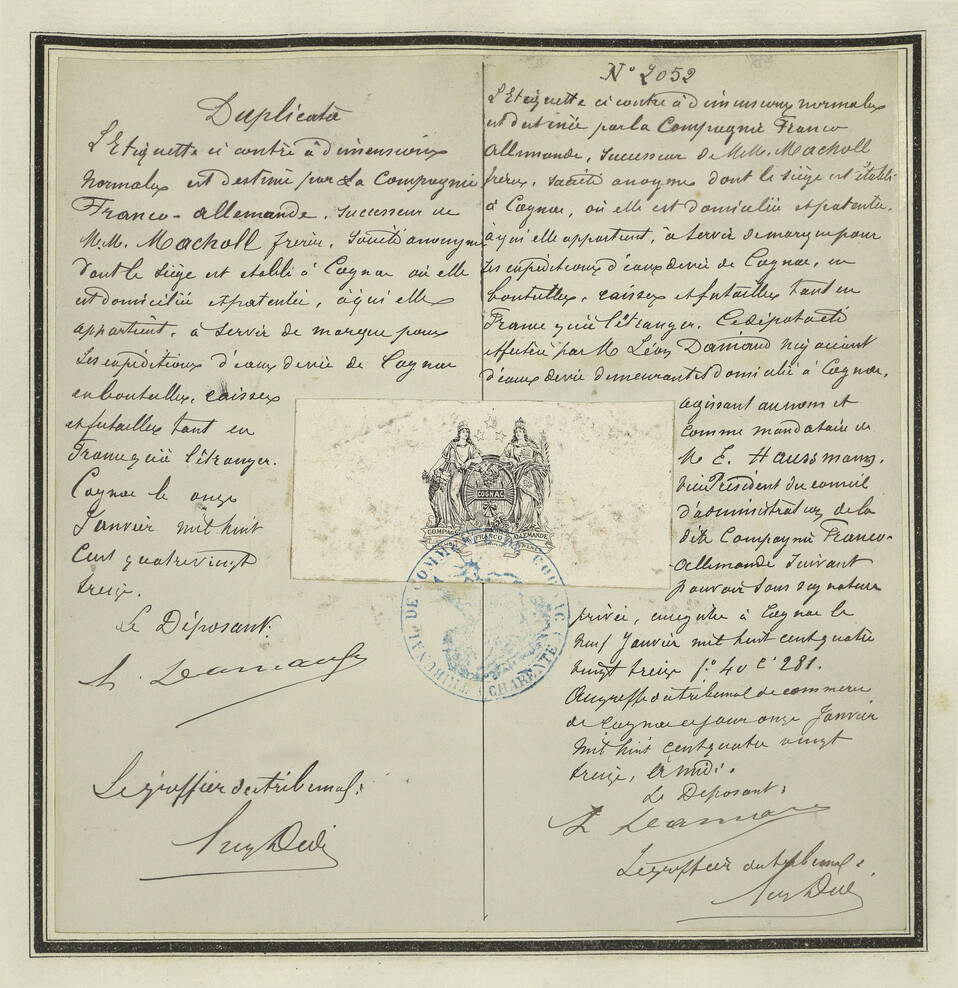 Duplicata
L'Etiquette ci contre à dimensions
normales est destinée par la Compagnie
Franco-allemande, successeur de
M.M. Macholl frères, Société anonyme
dont le siège est établi à Cognac où elle
est domiciliée et patentée, à qui elle
appartient, à servir de marque pour
ses expéditions d'eaux de vie de Cognac
en bouteilles, caisses
et futailles tant en
France qu'à l'étranger.
Cognac le onze
Janvier mil huit
cent quatre vingt
treize.
Le Déposant:
Le greffier du tribunal:
N° 2052
L'Etiquette ci contre à dimensions normales
est destinée par la Compagnie Franco
allemande, successeur de M.M. Macholl
frères, Société anonyme dont le siège est établi
à Cognac, où elle est domiciliée et patentée,
à qui elle appartient, à servir de marque pour
ses expéditions d'eaux de vie de Cognac, en
bouteilles, caisses et futailles tant en
France qu'à l'étranger. Ce dépôt a été
effectué par M. Léon Damiaud négociant
d'eaux de vie demeurant et domicilié à Cognac,
agissant au nom et
comme mandataire de
M. E. Haussmann,
Vice Président du conseil
d'administration de la
dite Compagnie Franco-
Allemande suivant
pouvoir sous signature
privée, enregistré à Cognac le
neuf Janvier mil huit cent quatre
vingt treize f.° 40 C. 281.
Au greffe du tribunal de commerce
de Cognac ce jour onze Janvier
mil huit cent quatre vingt
treize, à midi.
Le Déposant:
Le greffier du tribunal:
COGNAC
COMPAGNIE FRANCO ALLEMANDE
TRIBUNAL DE COMMERCE DE COGNAC (CHARENTE)